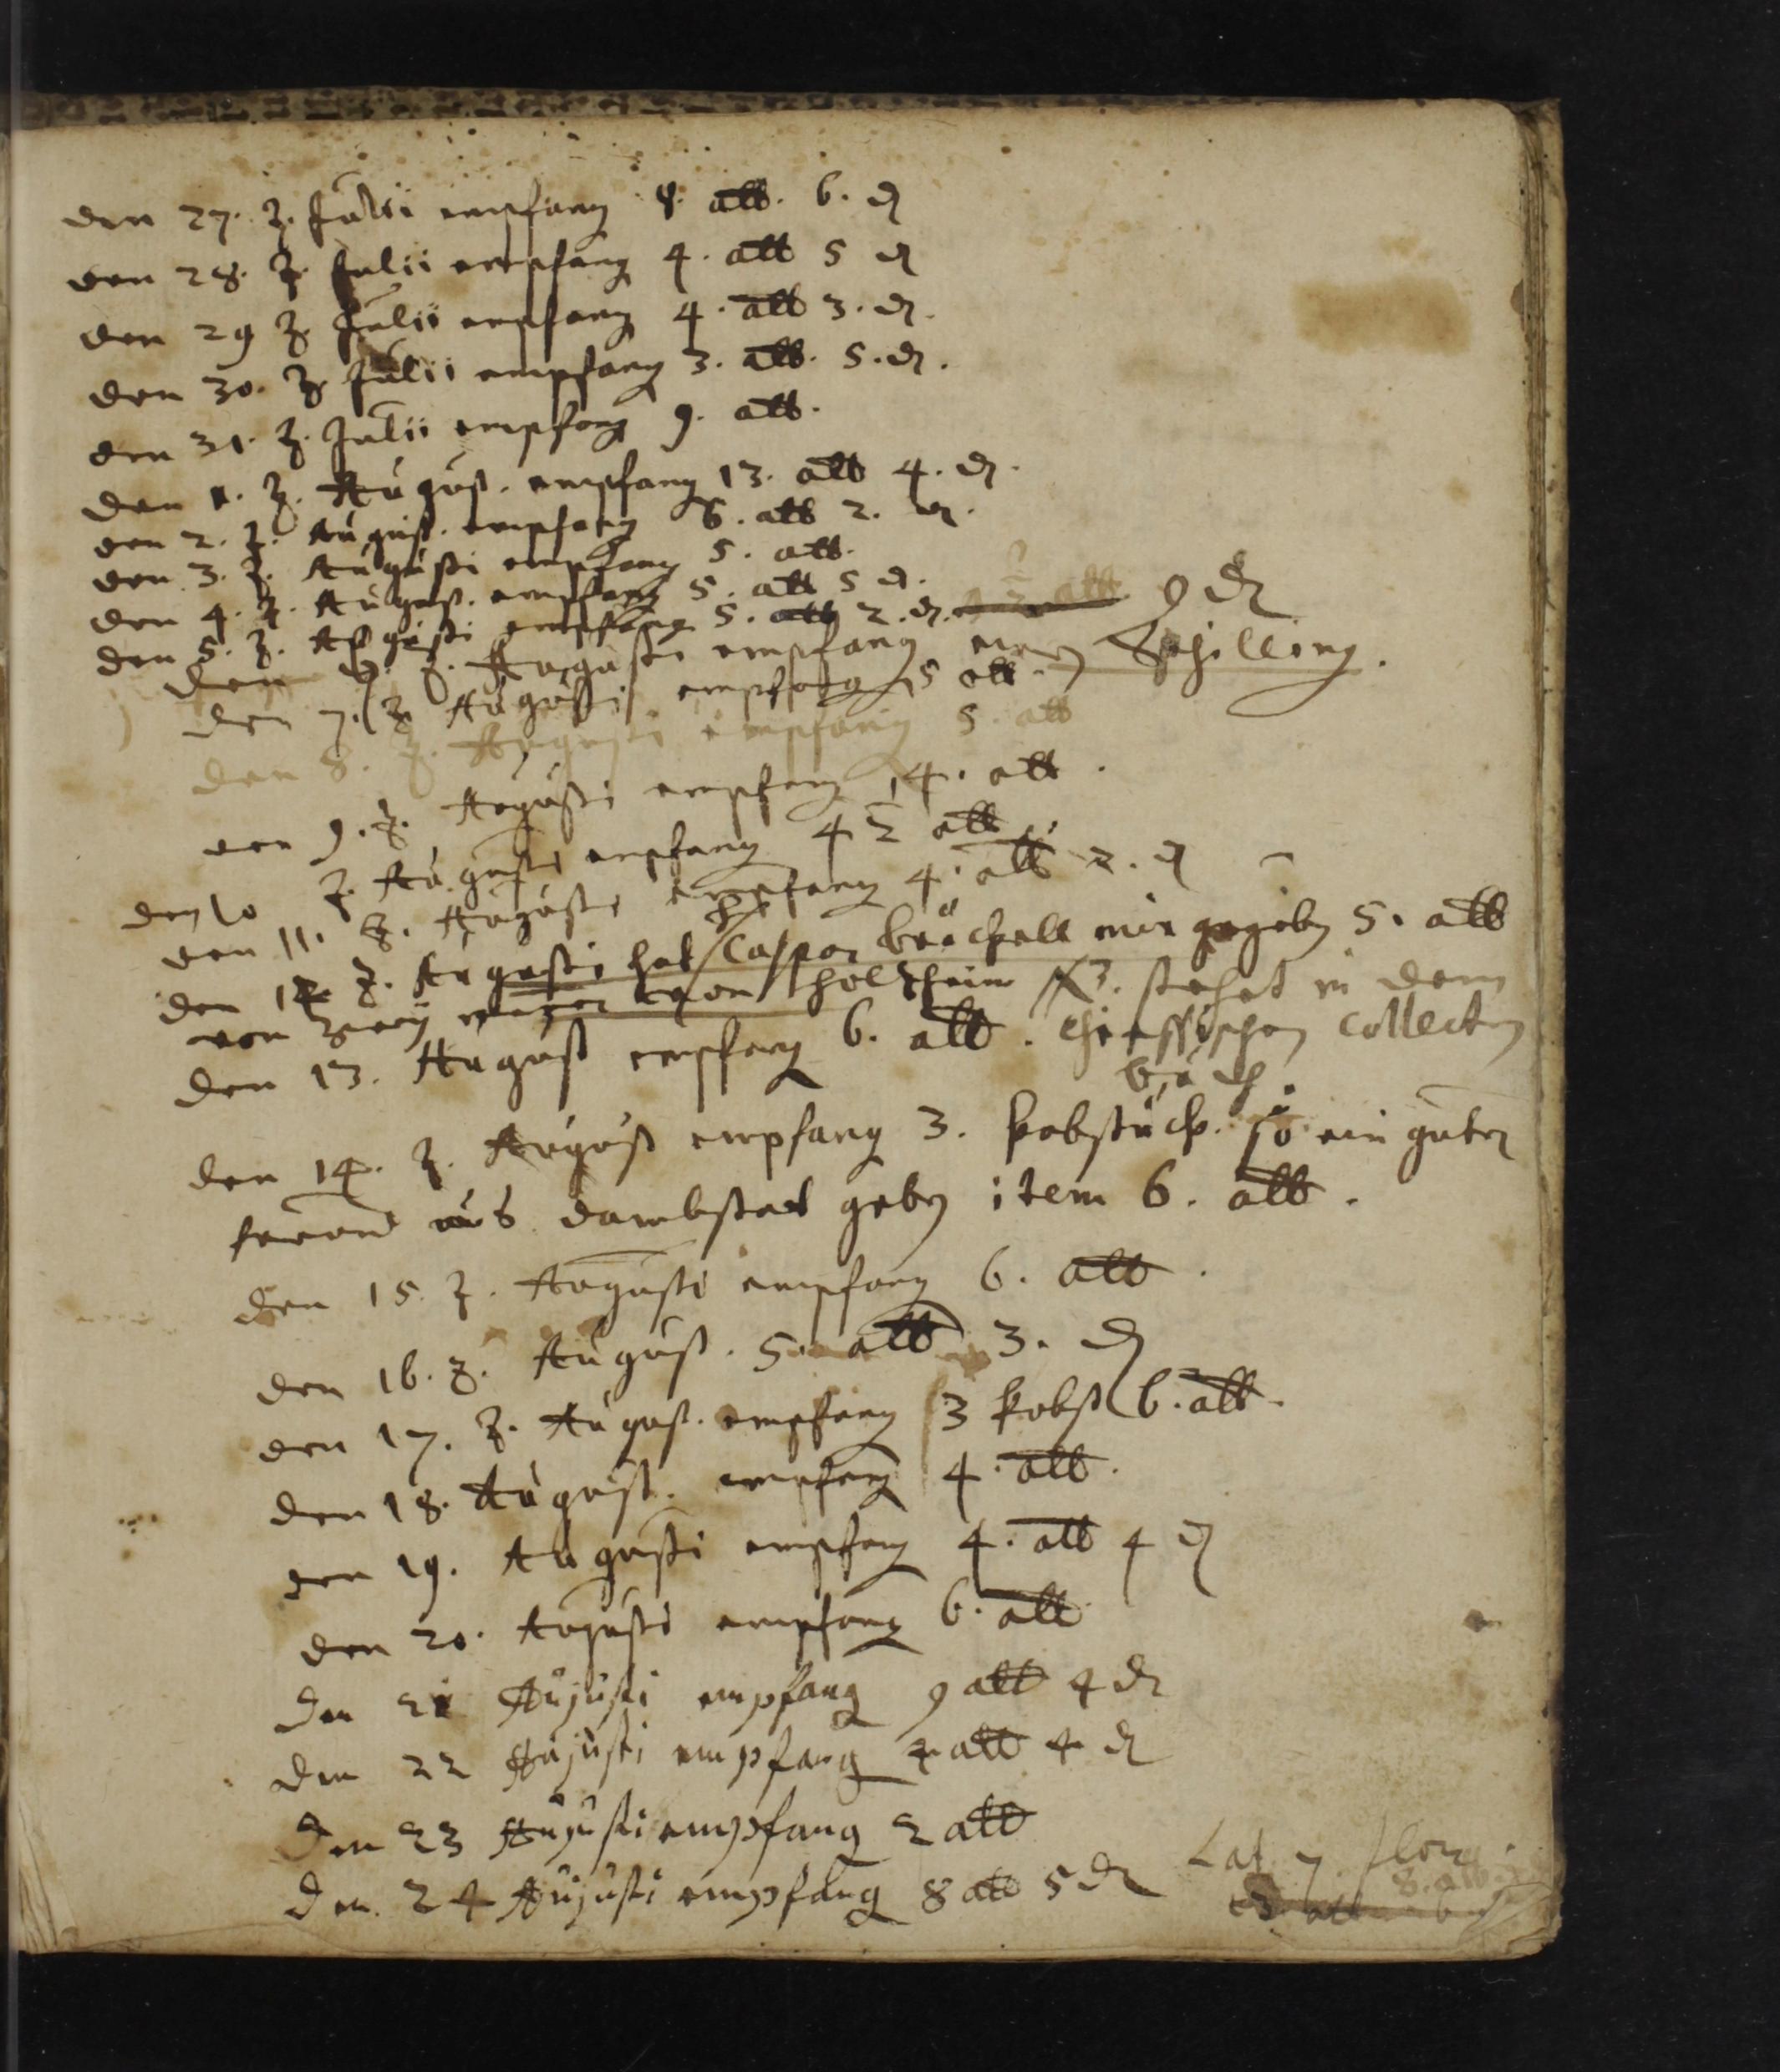 den 27. z. Julii empfang 8. alb. 6. ₰
den 28. z. Julii empfang 4. alb 5 ₰
den 29 z. Julii empfang 4. alb 3. ₰.
den 30. z. Julii empfang 3. alb. 5. ₰.
den 31. z. Julii empfang 9. alb.
den 1. z. August. empfang 13. alb 4. ₰.
den 2. z. August. empfang 6. alb 2. ₰.
den 3. z. Augusti empfang 5. alb.
den 4. z. August. empfang 5. alb 5 ₰.
den 5. z. Augusti empfang 5. alb 2. ₰. 9 ₰
den z. Augusti empfang einen Schilling.
den 7. z. Augusti empfang 5 alb.
den 8. z. Augusti empfang 5. alb
den 9. z. Augusti empfang 14. alb.
den 10 z. Augusti empfang 4 ½ alb
den 11. z. Augusti empfang 4. alb 2. ₰
den 12. z. Augusti hat H Caspar mir gegeben 5. alb
von wegen von holtzheim stehet in dem
den 13. August empfang 6. alb. Collecten
buch.
den 14. z. August empfang 3. kobstück. so ein guter
freund aus darmbstat geben item 6. alb.
den 15. z. Augusti empfang 6. alb.
den 16. z. August. 5. alb 3. ₰
den 17. z. August. empfang 3 kobst 6. alb.
den 18. August. empfang 4. alb.
den 19. Augusti empfang 4. alb 4 ₰
den 20. Augusti empfang 6. alb
den 21 Augusti empfang 9 alb 4 ₰
den 22 Augusti empfang 4 alb 4 ₰
den 23 Augusti empfang 2 alb
den. 24 Augusti empfang 8 alb 5 ₰
Lat. 7. flor.
8. alb.